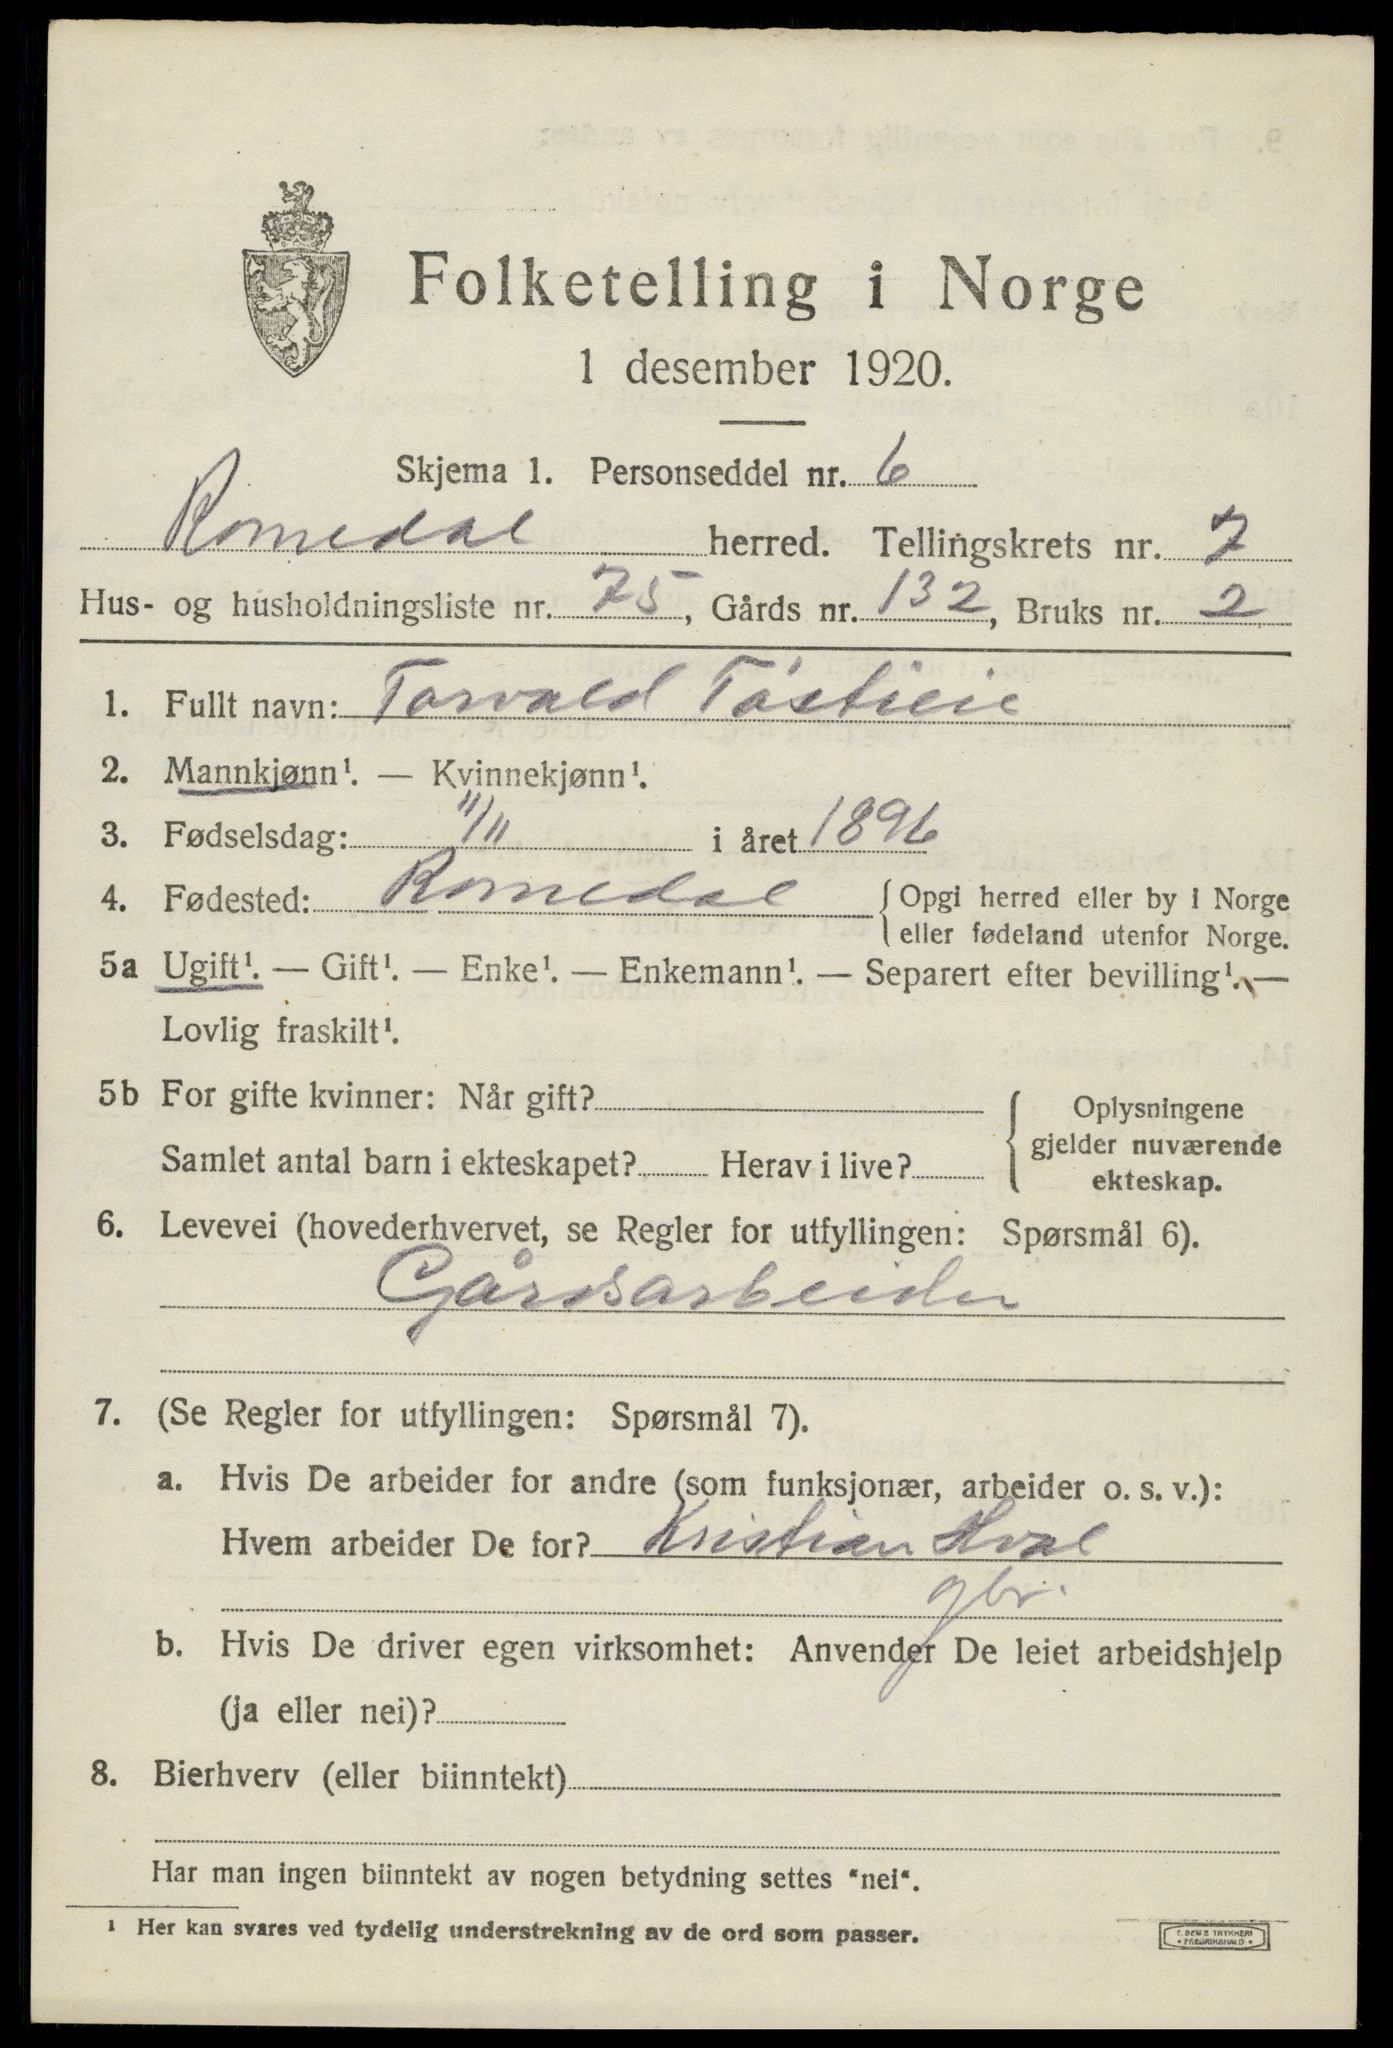 Folketelling i Norge
1 desember 1920.
Skjema 1. Personseddel nr. 6
Romedal herred. Tellingskrets nr. 7
Hus- og husholdningsliste nr. 75, Gårds nr. 132, Bruks nr. 2
1. Fullt navn: Torvald
2. Mannkjønn¹. — Kvinnekjønn¹.
3. Fødselsdag: 11/11 i året 1896
4. Fødested: Romedal {Opgi herred eller by i Norge
eller fødeland utenfor Norge.
5a Ugift¹. — Gift¹. — Enke¹. — Enkemann¹. — Separert efter bevilling¹. —
Lovlig fraskilt¹.
5b For gifte kvinner: Når gift?
Samlet antal barn i ekteskapet? Herav i live?
Oplysningene
gjelder nuværende
ekteskap.
6. Levevei (hovederhvervet, se Regler for utfyllingen: Spørsmål 6).
Gårdsarbeider
7. (Se Regler for utfyllingen: Spørsmål 7).
a. Hvis De arbeider for andre (som funksjonær, arbeider o. s. v.):
Hvem arbeider De for? Kristian Hval
gbr.
b. Hvis De driver egen virksomhet: Anvender De leiet arbeidshjelp
(ja eller nei)?
8. Bierhverv (eller biinntekt)
Har man ingen biinntekt av nogen betydning settes "nei".
¹ Her kan svares ved tydelig understrekning av de ord som passer.